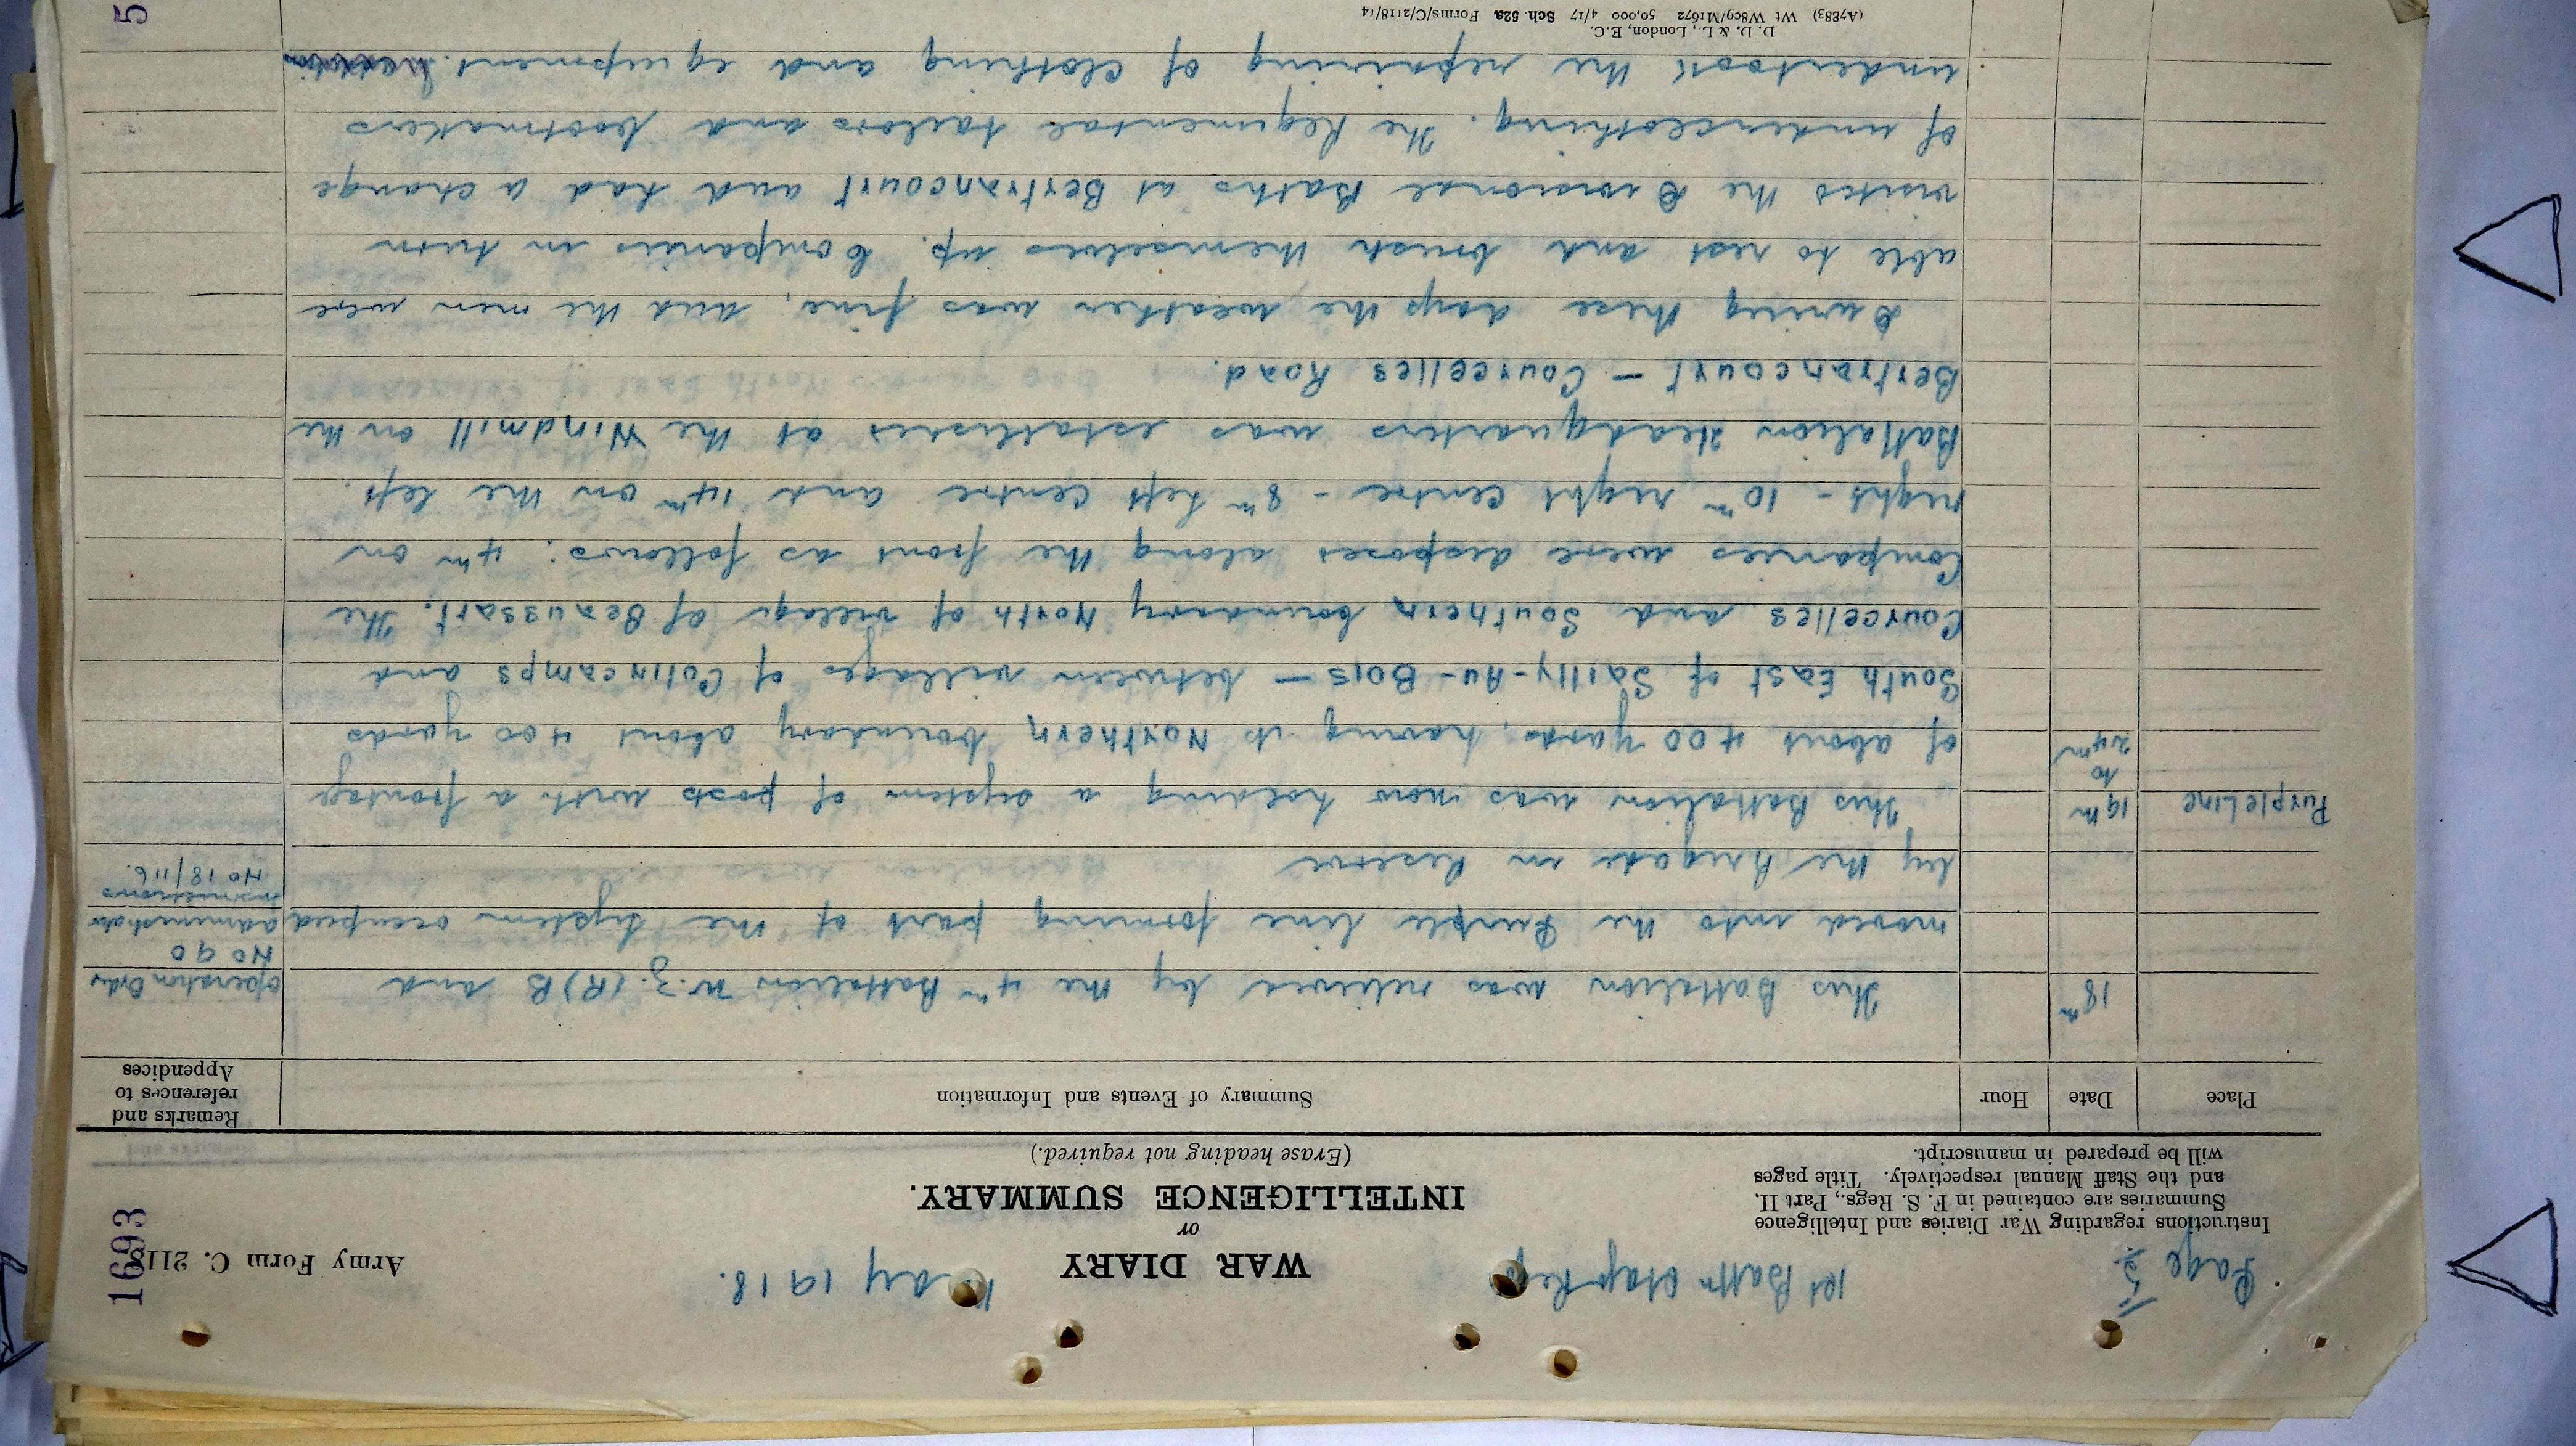 Page 5.
1st Battn Otago Regt
May 1918.
Army Form C. 2118.
1693
Instructions regarding War Diaries and Intelligence
Summaries are contained in F. S. Regs., Part II.
and the Staff Manual respectively. Title pages
will be prepared in manuscript.
WAR DIARY
or
INTELLIGENCE SUMMARY.
(Erase heading not required.)
Place
Date
Hour
Summary of Events and Information
Remarks and
references to
Appendices
18th
This Battalion was relieved by the 4th Battalion N.Z.(R)B and
Operation Order
No 90
moved into the Purple line forming part of the system occupied
administrative
instructions
No 18/116.
by the Brigade in Reserve
Purple Line
19th
to
24th
This Battalion was now holding a system of posts with a frontage
of about 400 yards, having its Northern boundary about 400 yards
South East of Sailly-Au-Bois - between villages of Colincamps and
Courcelles and Southern boundary North of village of Beaussart. The
Companies were disposed along the front as follows: 4th on
right - 10th right centre - 8th left centre and 14th on the left.
Battalion Headquarters was established at the Windmill on the
Bertrancourt - Courcelles Road.
During these days the weather was fine, and the men were
able to rest and brush themselves up. Companies in turn
visited the Divisional Baths at Bertrancourt and had a change
of underclothing. The Regimental tailors and bootmakers
undertook the repairing of clothing and equipment.
D. D. & L., London, E.C.
(A7883) Wt W8c9/M1672 50,000 4/17 Sch. 52a Forms/C/2118/14
5